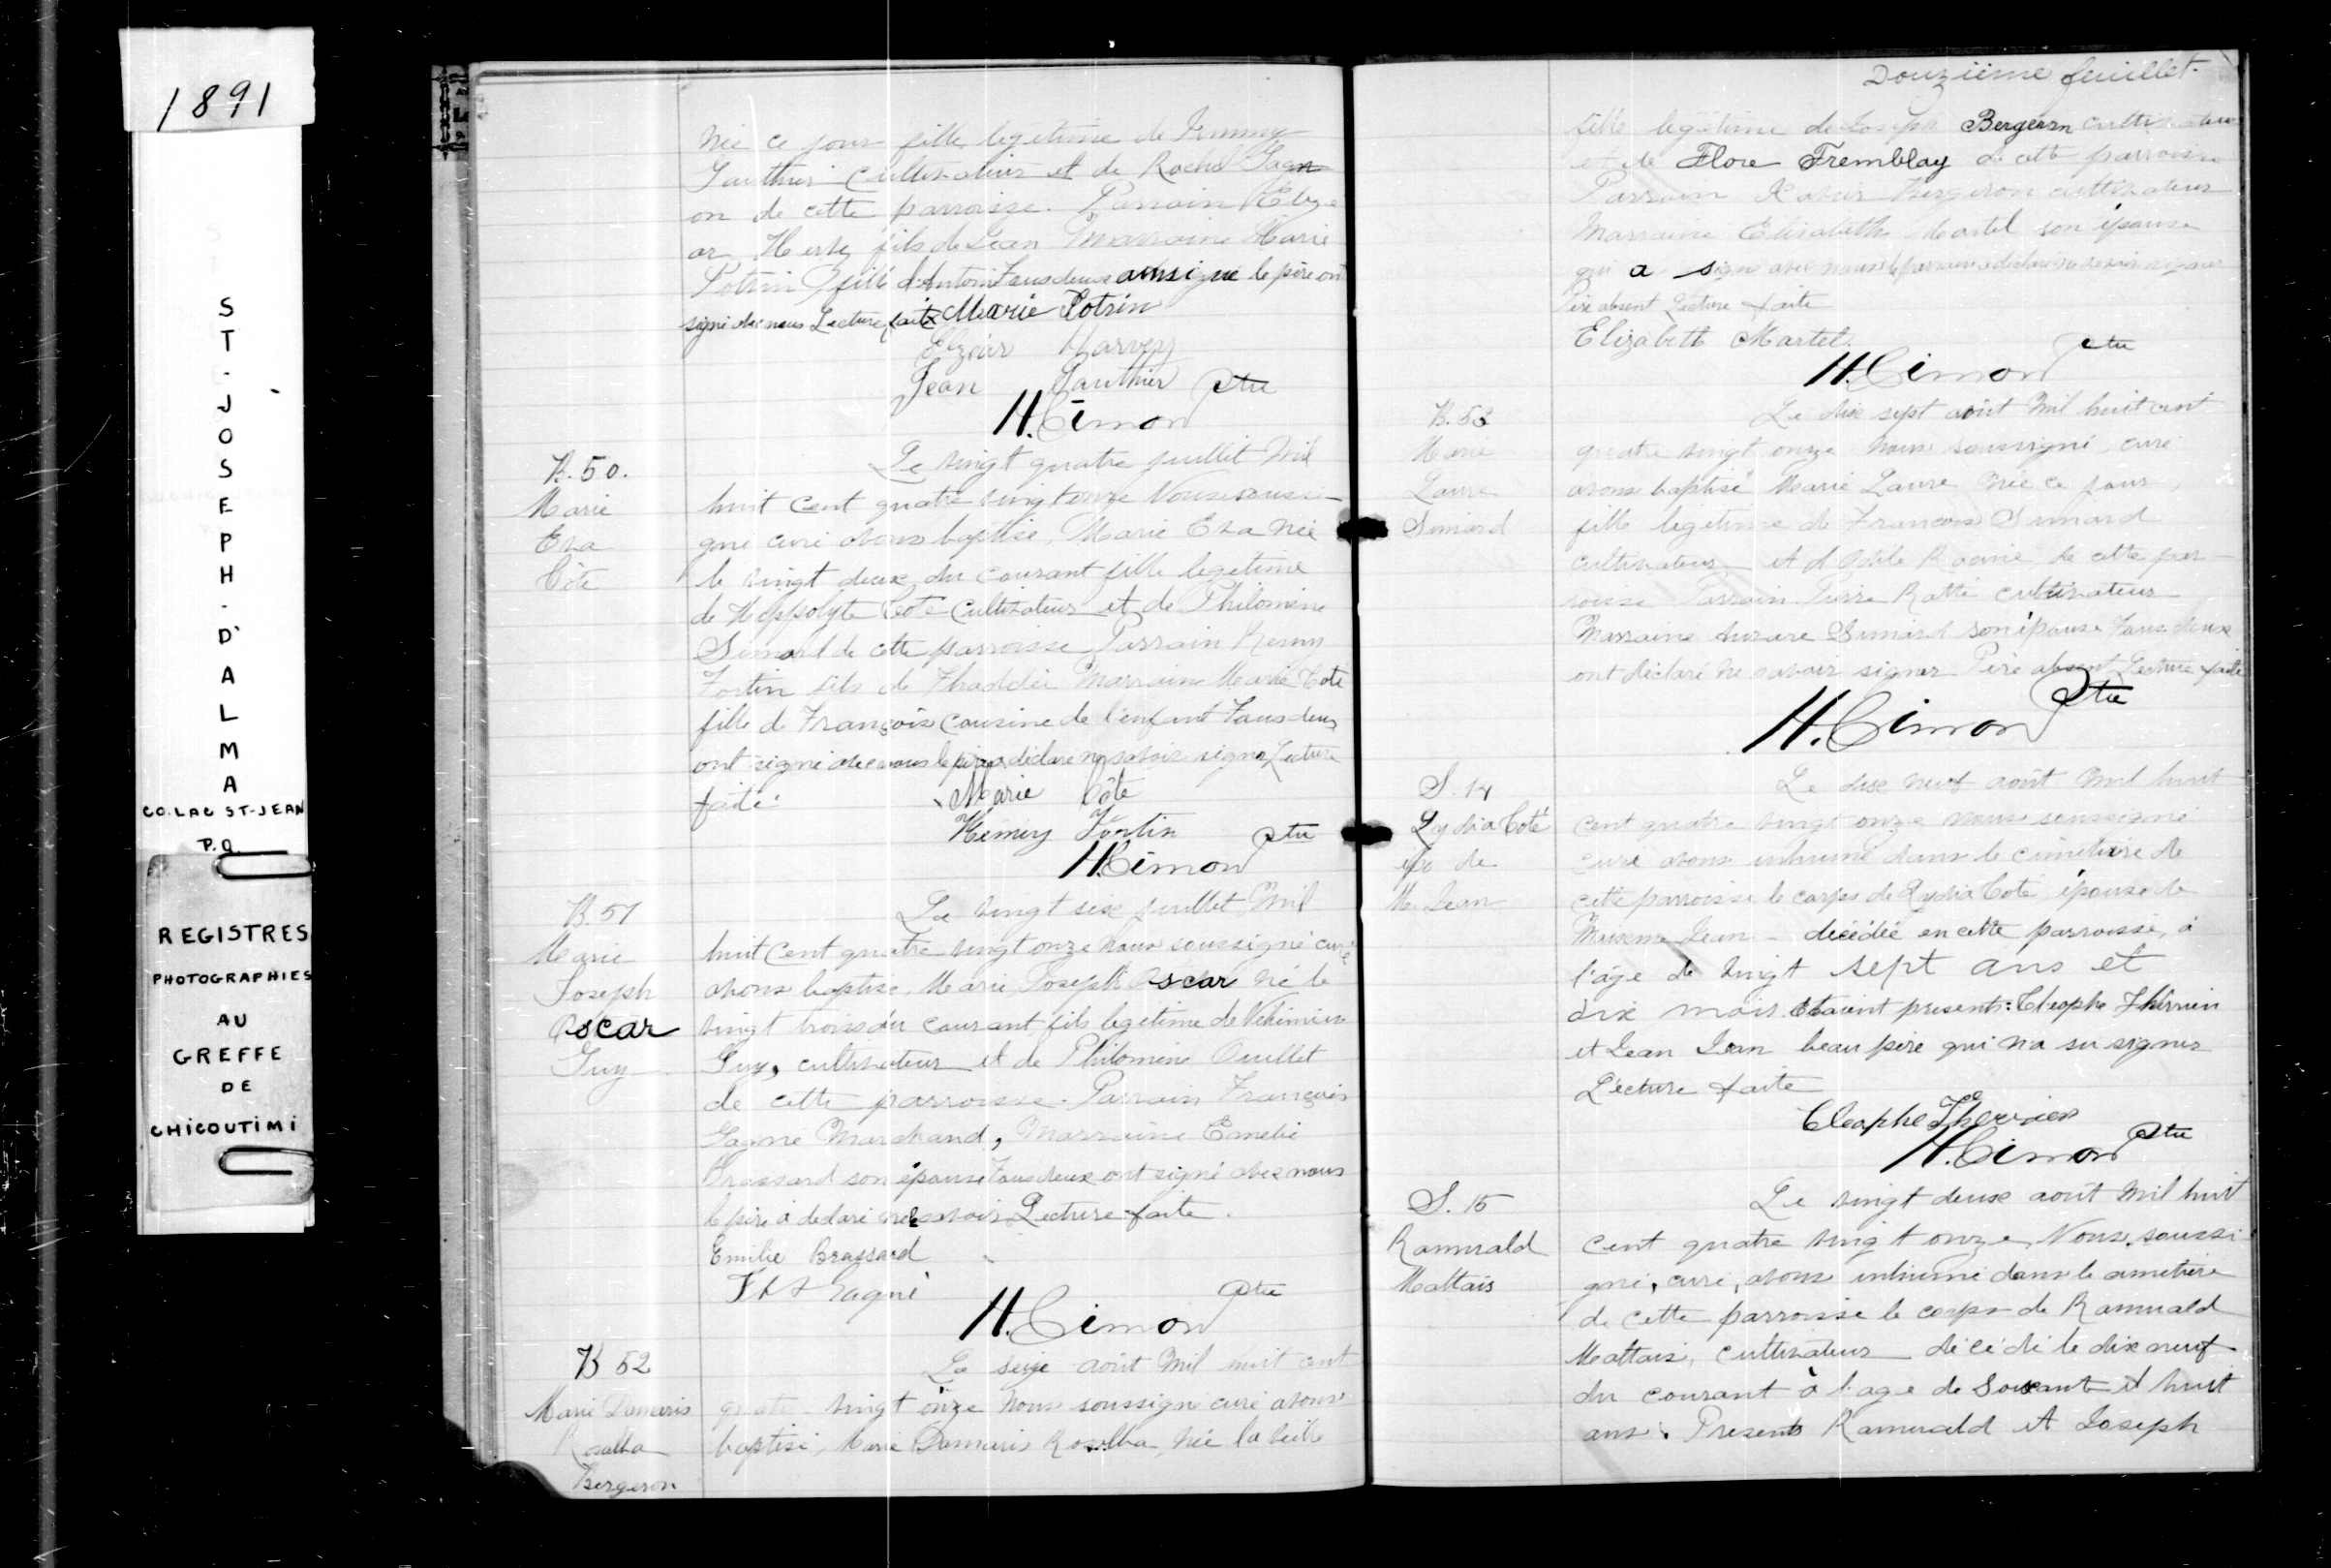 1891
ST-JOSEPH-D'ALMA
CO. LAC ST-JEAN
P.Q.
REGISTRES
PHOTOGRAPHIES
AU
GREFFE
DE
CHICOUTIMI
née ce jour fille legetime de
Gauthier cultivateur et de Rachel Gagn
on de cette parroisse. Parrain Elze
ar Hervey fils de Jean Marraine Marie
Potvin fille d'Antoine Tous deux ainsi que le père ont
signé avec nous Lecture faite Marie Potvin
Elzéar Harvey
Jean Gauthier
H. Cimon Ptre
B. 50.
Marie
Eva
Côte
Le vingt quatre juillet Mil
huit cent quatre vingt onze Nous soussi
gné curé avons baptisé, Marie Eva née
le vingt deux du courant fille legetime
de Hyppolyte Coté cultivateur et de Philomène
Simard de cette parroisse Parrain
Fortin fils de Thaddée Marraine Marie Cote
fille de François cousine de l'enfant Tous deux
ont signé avec nous le père a déclaré ne savoir signer Lecture
faite. Marie Côte
Hemery Fortin
H. Cimon Ptre
B. 51
Marie
Joseph
Oscar
Guy
Le vingt six juillet Mil
huit cent quatre vingt onze nous soussigné curé
avons baptisé, Marie Joseph Oscar né le
vingt trois du courant fils legetime de Nehemie
Guy, cultivateur et de Philomène Ouellet
de cette parroisse. Parrain François
Gagné Marchand, Marraine Emelie
Brassard son épouse Tous deux ont signé avec nous
le père a declaré ne savoir Lecture faite.
Emilie Brassard
Gagné
H. Cimon Ptre
B 52
Marie Damaris
Rosalba
Bergeron
Le seize août Mil huit cent
quatre vingt onze Nous soussigné curé avons
baptisé, Marie Damaris Rosalba, née la veille
Douzième feuillet.
fille legetime de Joseph Bergeron cultivateur
et de Flore Tremblay de cette parroisse
Parrain Xavier Bergeron cultivateur
Marraine Elisabeth Martel son épouse
qui a signé avec nous le parrain a déclaré ne savoir signer
Père absent Lecture faite
Elizabeth Martel.
H. Cimon Ptre
B. 53
Marie
Laure
Simard
Le dix sept août Mil huit cent
quatre vingt onze Nous soussigné curé
avons baptisé Marie Laure née ce jour,
fille legetime de François Simard
cultivateur et d'Odile Racine de cette par
roisse Parrain Pierre Ratté cultivateur
Marraine Aurore Simard son épouse Tous deux
ont déclaré ne savoir signer Père absent Lecture faite
H. Cimon Ptre
S. 14
Lydia Coté
épo de
M. Jean
Le dix neuf août Mil huit
cent quatre vingt onze nous soussigné
curé avons inhumé dans le cimetière de
cette parroisse le corps de Lydia Coté épouse de
Maxime Jean décédée en cette parroisse, à
l'âge de vingt sept ans et
dix mois. Etaient presents: Cleophe Therrien
et Jean Jean beau père qui n'a su signer
Lecture faite
Cleophe Therrien
H. Cimon Ptre
S. 15
Ramuald
Maltais
Le vingt deux août Mil huit
cent quatre vingt onze, Nous, soussi
gné, curé, avons inhumé dans le cimetière
de cette parroisse le corps de Ramuald
Maltais, cultivateur décédé le dix neuf
du courant à l'age de Soixante et huit
ans. Presents Ramuald et Joseph